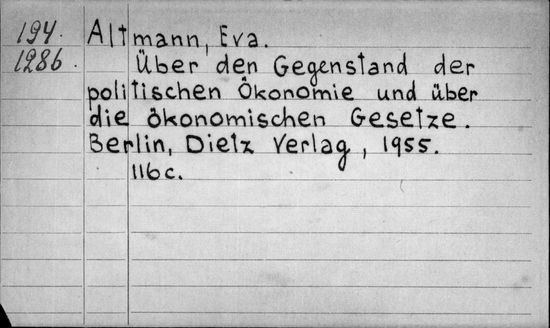 194. Altmann, Eva.
1286. Über den Gegenstand der
politischen Ökonomie und über
die ökonomischen Gesetze.
Berlin, Dietz Verlag, 1955.
116c.